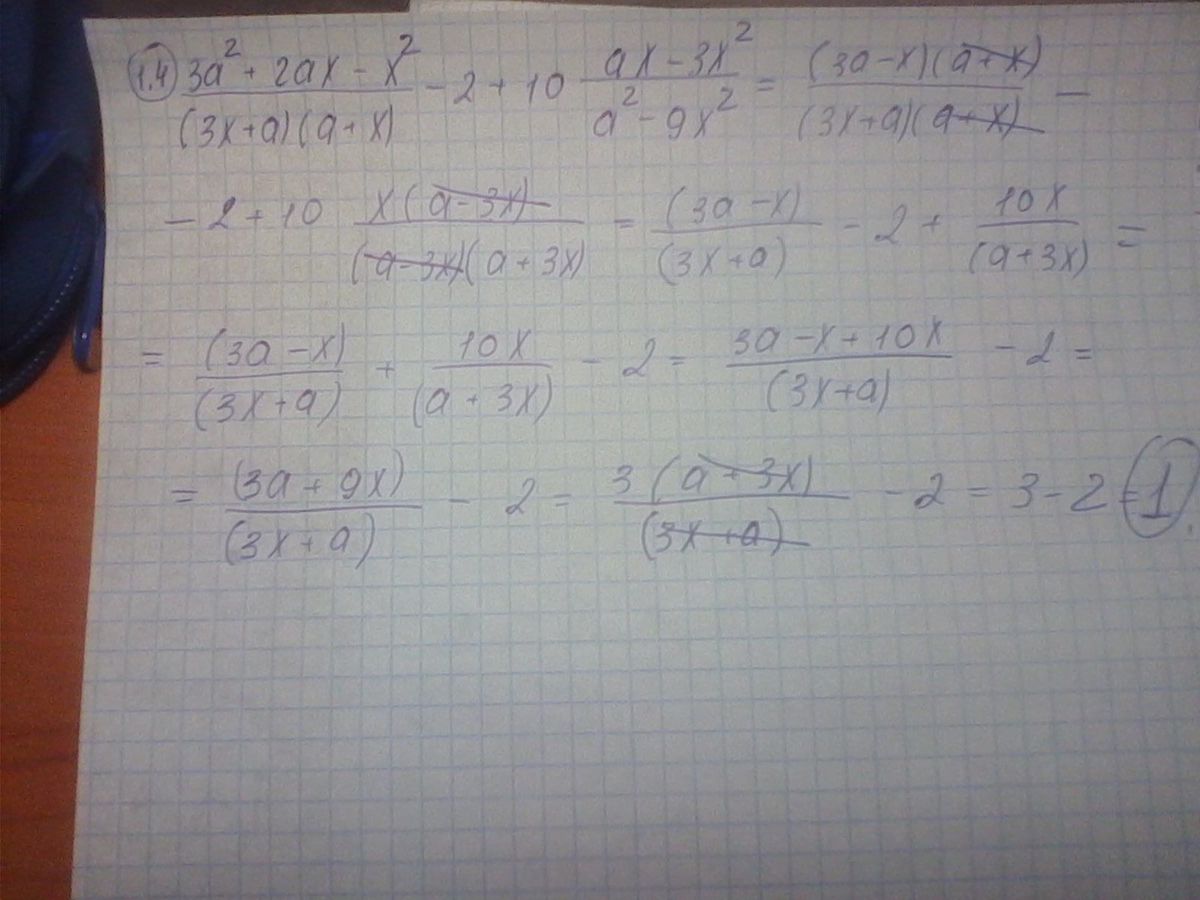 1.4 (3a² + 2ax − x²)/((3x+a)(a+x)) − 2 + 10 (ax − 3x²)/(a² − 9x²) = ((3a−x)(a+x))/((3x+a)(a+x)) −
− 2 + 10 (x(a−3x))/((a−3x)(a+3x)) = (3a−x)/(3x+a) − 2 + 10x/(a+3x) =
= (3a−x)/(3x+a) + 10x/(a+3x) − 2 = (3a−x+10x)/(3x+a) − 2 =
= (3a+9x)/(3x+a) − 2 = 3(a+3x)/(3x+a) − 2 = 3 − 2 = 1